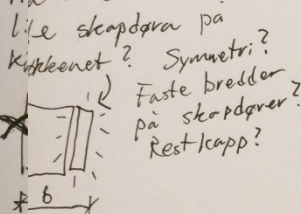 lille skapdøra på
kjøkkenet? Symmetri?
Faste bredder
på skapdører?
Restkapp?
6